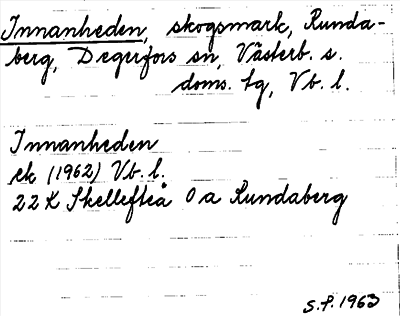 Innanheden, skogsmark, Runda-
berg, Degerfors sn, Västerb. s.
doms. tg, Vb. l.
Innanheden
ek (1962) Vb. l.
22 K Skellefteå 0 a Rundaberg
S.P. 1963